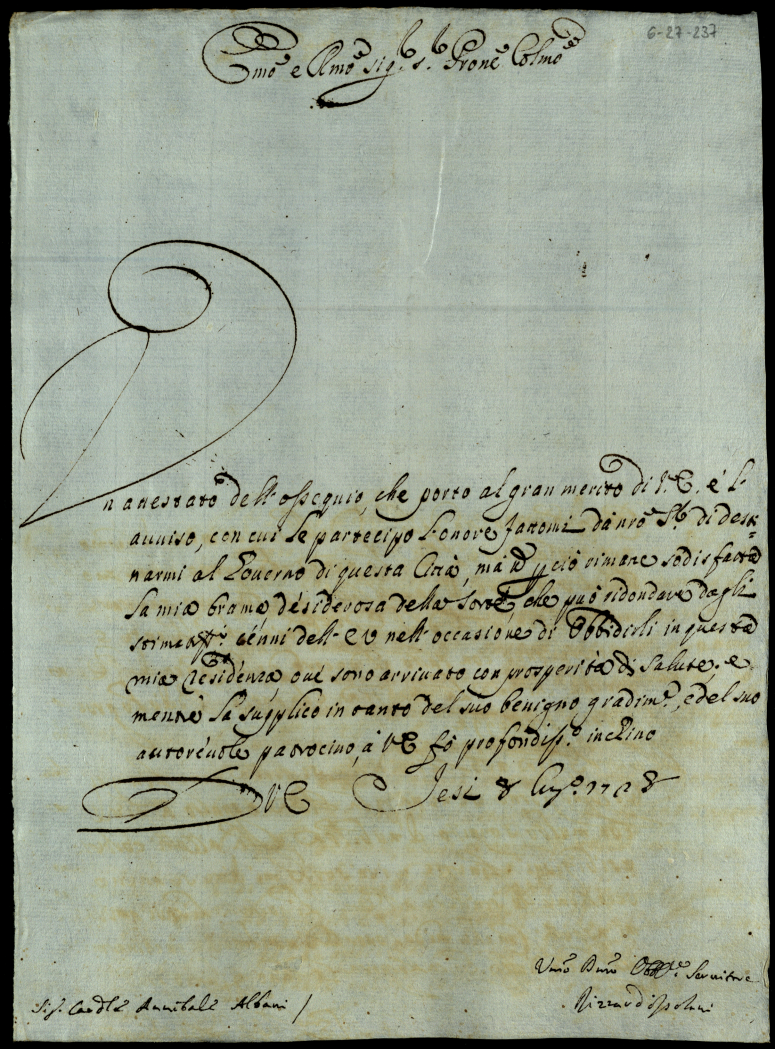 6-27-237
Emo e Rmo Sig.r s.r Prone Colmo
Un attestato dell'ossequio, che porto al gran merito di V.E. é l'
auuiso, con cui le partecipo l'onore fattomi dà nro Sre di desti=
narmi al Gouerno di questa Città, mà ciò rimane sodisfatta
la mia brama desiderosa della sorte, che può ridondare dagli
stimatmi cénni dell'EV nell'occasione di Obbidirli in questa
mia Residénza oue sono arriuato con prosperità di salute; e
mentre la supplico in tanto del suo benigno gradim.o, e del suo
autoréuole patrocino, à VE fò profondiss.o inchino
D VE Jesi 8 Lug.o 1728
Umo Dmo Obbmo Seruitore
Sig. Cardle Annibale Albani